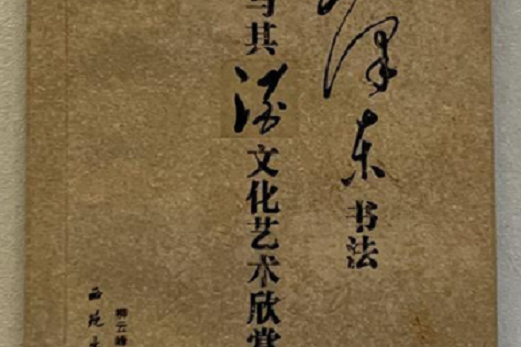 泽东书法
与其酒文化艺术欣赏
柳云峰
西苑